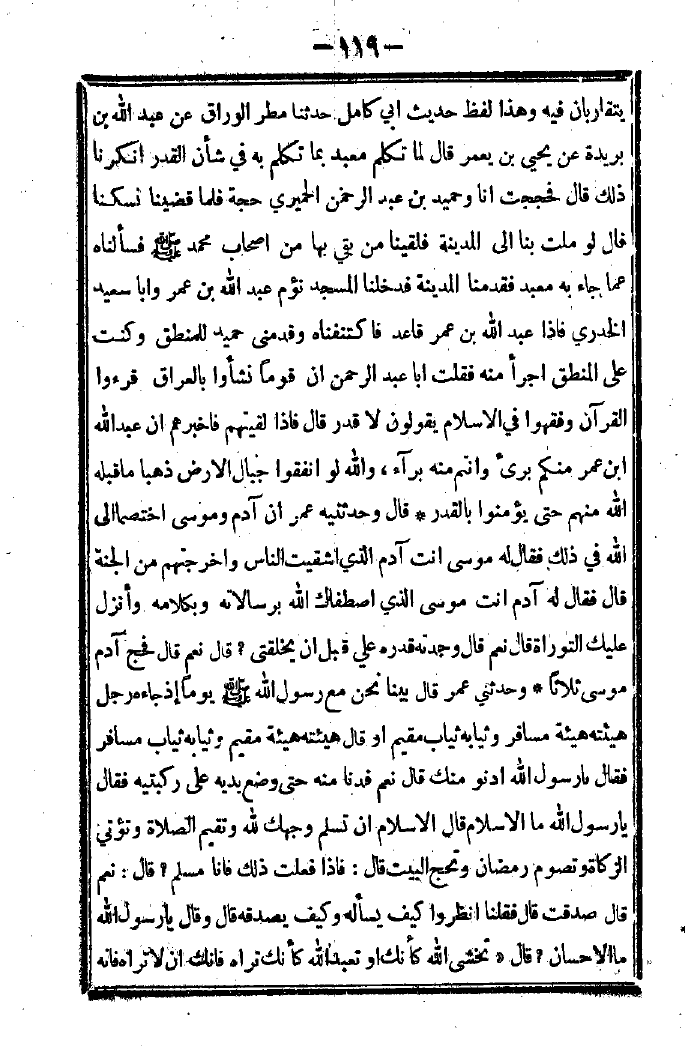 -١١٩-
يتقاربان فيه وهذا لفظ حديث ابي كامل حدثنا مطر الوراق عن عبد الله بن
بريدة عن يحيى بن يعمر قال لما تكلم معبد بما تكلم به في شأن القدر انكرنا
ذلك قال فحججت انا وحميد بن عبد الرحمن الحميري حجة فلما قضينا نسكنا
قال لو ملت بنا الى المدينة فلقينا من بقي بها من اصحاب محمد ﷺ فسألناه
عما جاء به معبد فقدمنا المدينة فدخلنا المسجد نؤم عبد الله بن عمر وابا سعيد
الخدري فاذا عبد الله بن عمر قاعد فاكتنفناه وقدمني حميد للمنطق وكنت
على المنطق اجرأ منه فقلت ابا عبد الرحمن ان قوماً نشأوا بالعراق قرءوا
القرآن وفقهوا في الاسلام يقولون لا قدر قال فاذا لقيتهم فاخبرهم ان عبدالله
ابن عمر منكم برئ وانتم منه برآء ، والله لو انفقوا جبال الارض ذهبا ماقبله
الله منهم حتى يؤمنوا بالقدر * قال وحدثنيه عمر ان آدم وموسى اختصما الى
الله في ذلك فقال له موسى انت آدم الذي اشقيت الناس واخرجتهم من الجنة
قال فقال له آدم انت موسى الذي اصطفاك الله برسالاته وبكلامه وأنزل
عليك التوراة قال نعم قال وجدته قدره علي قبل ان يخلقني ? قال نعم قال فحج آدم
موسى ثلاثاً * وحدثني عمر قال بينا نحن مع رسول الله ﷺ يوماً إذ جاءه رجل
هيئته هيئة مسافر وثيابه ثياب مقيم او قال هيئته هيئة مقيم وثيابه ثياب مسافر
فقال يارسول الله ادنو منك قال نعم فدنا منه حتى وضع يديه على ركبتيه فقال
يارسول الله ما الاسلام قال الاسلام ان تسلم وجهك لله وتقيم الصلاة وتؤتي
الزكاة وتصوم رمضان وتحج البيت قال : فاذا فعلت ذلك فانا مسلم ? قال : نعم
قال صدقت قال فقلنا انظروا كيف يسأله وكيف يصدقه قال وقال يارسول الله
ما الاحسان ? قال « تخشى الله كأنك او تعبد الله كأنك تراه فانك ان لا تراه فانه